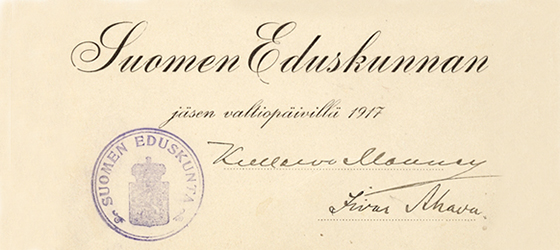 Suomen Eduskunnan
jäsen valtiopäivillä 1917
SUOMEN EDUSKUNTA
Kullervo Manner
Iivar Ahava.